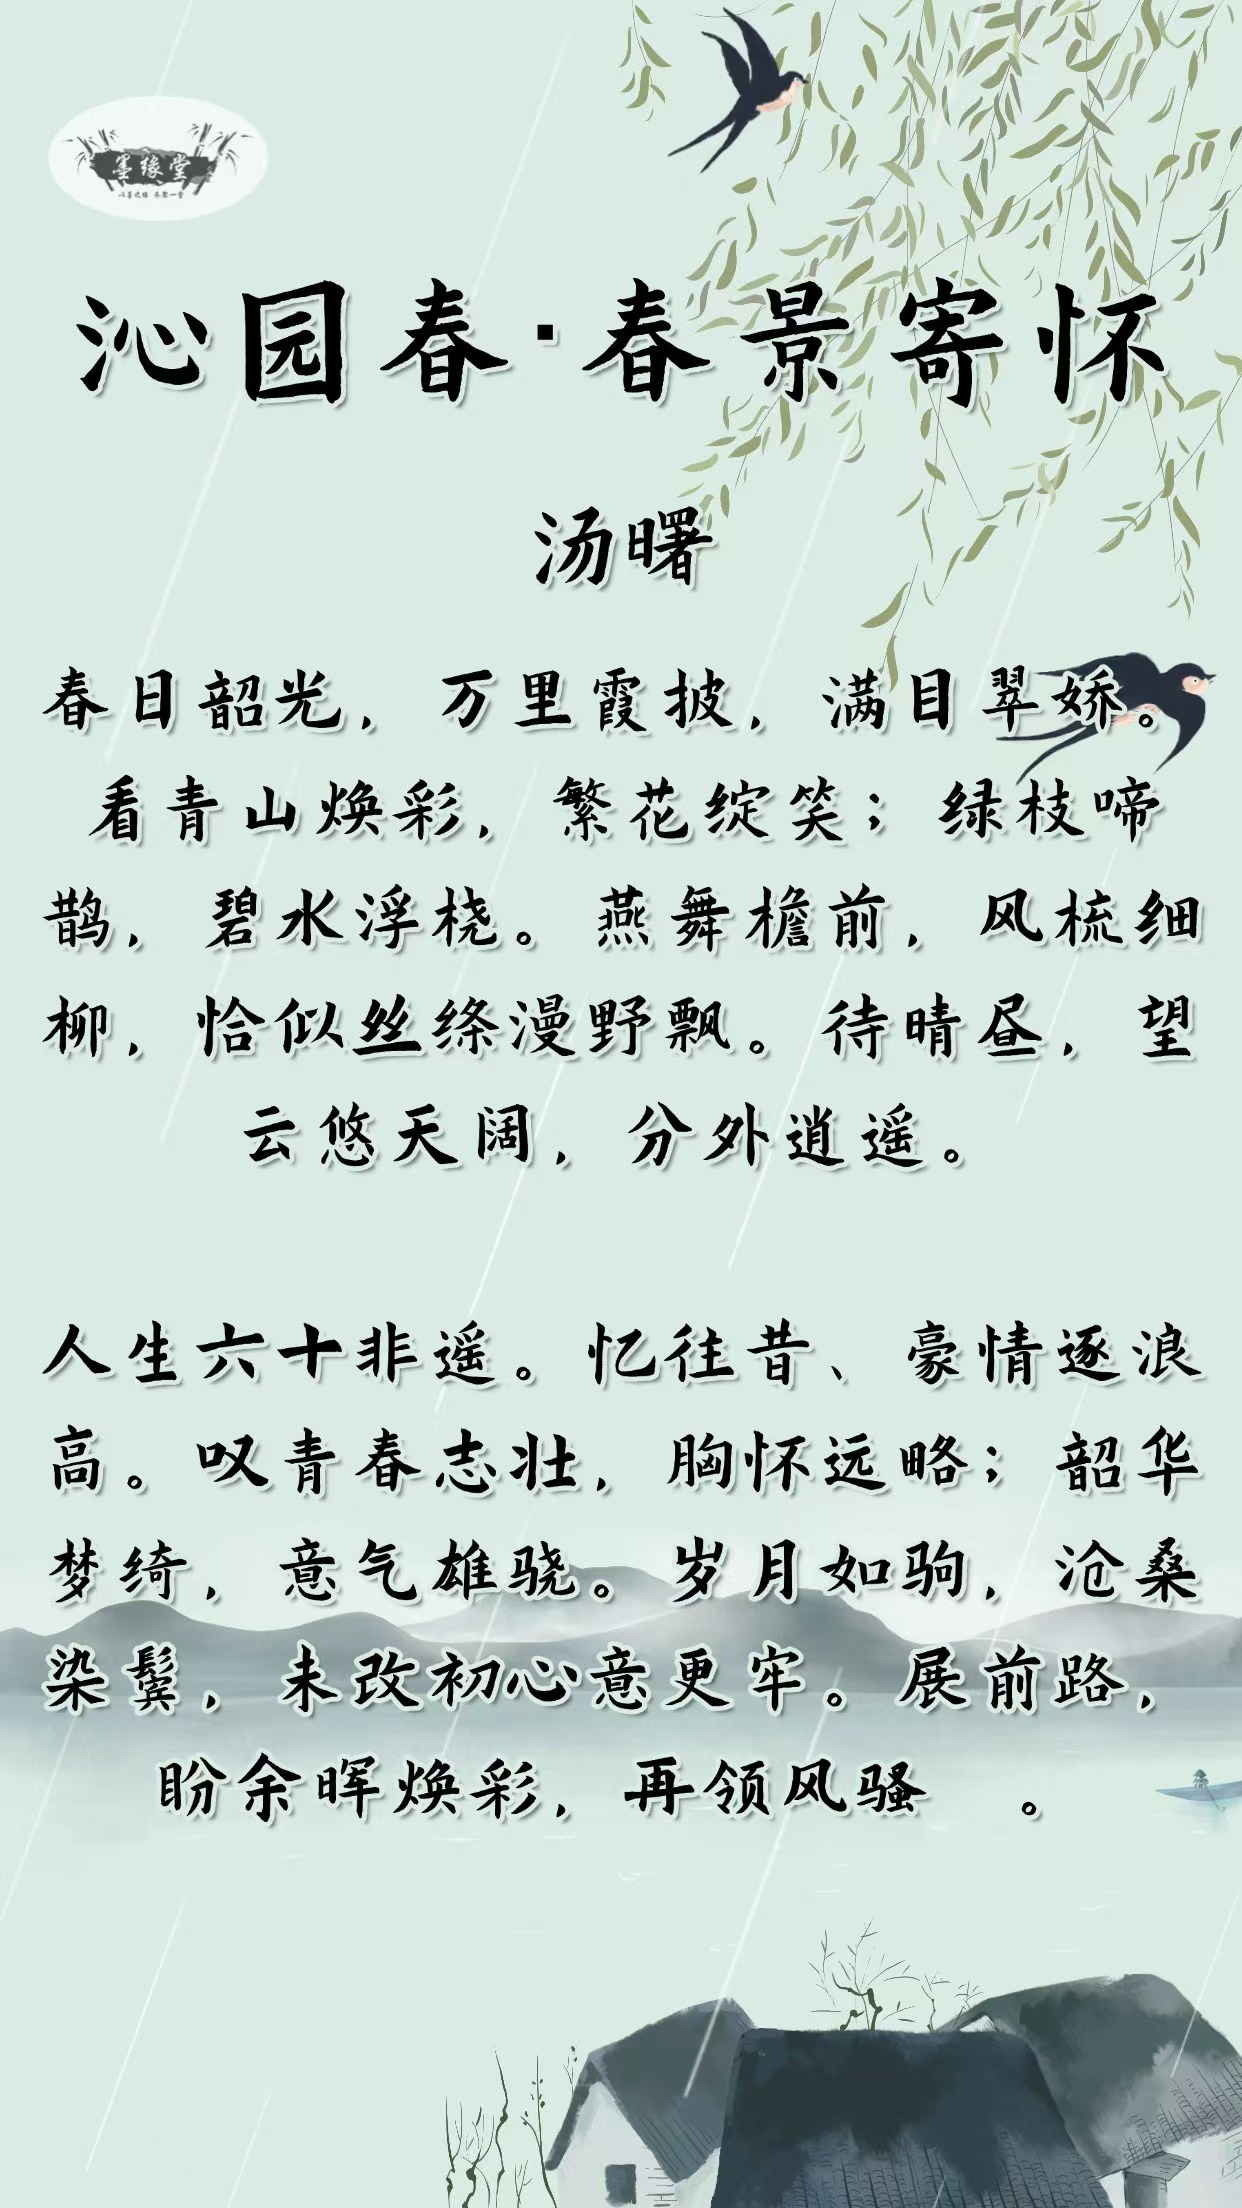 墨缘堂
以墨之缘 齐聚一堂
沁园春·春景寄怀
汤曙
春日韶光，万里霞披，满目翠娇。
看青山焕彩，繁花绽笑；绿枝啼
鹊，碧水浮桡。燕舞檐前，风梳细
柳，恰似丝绦漫野飘。待晴昼，望
云悠天阔，分外逍遥。
人生六十非遥。忆往昔、豪情逐浪
高。叹青春志壮，胸怀远略；韶华
梦绮，意气雄骁。岁月如驹，沧桑
染鬓，未改初心意更牢。展前路，
盼余晖焕彩，再领风骚 。